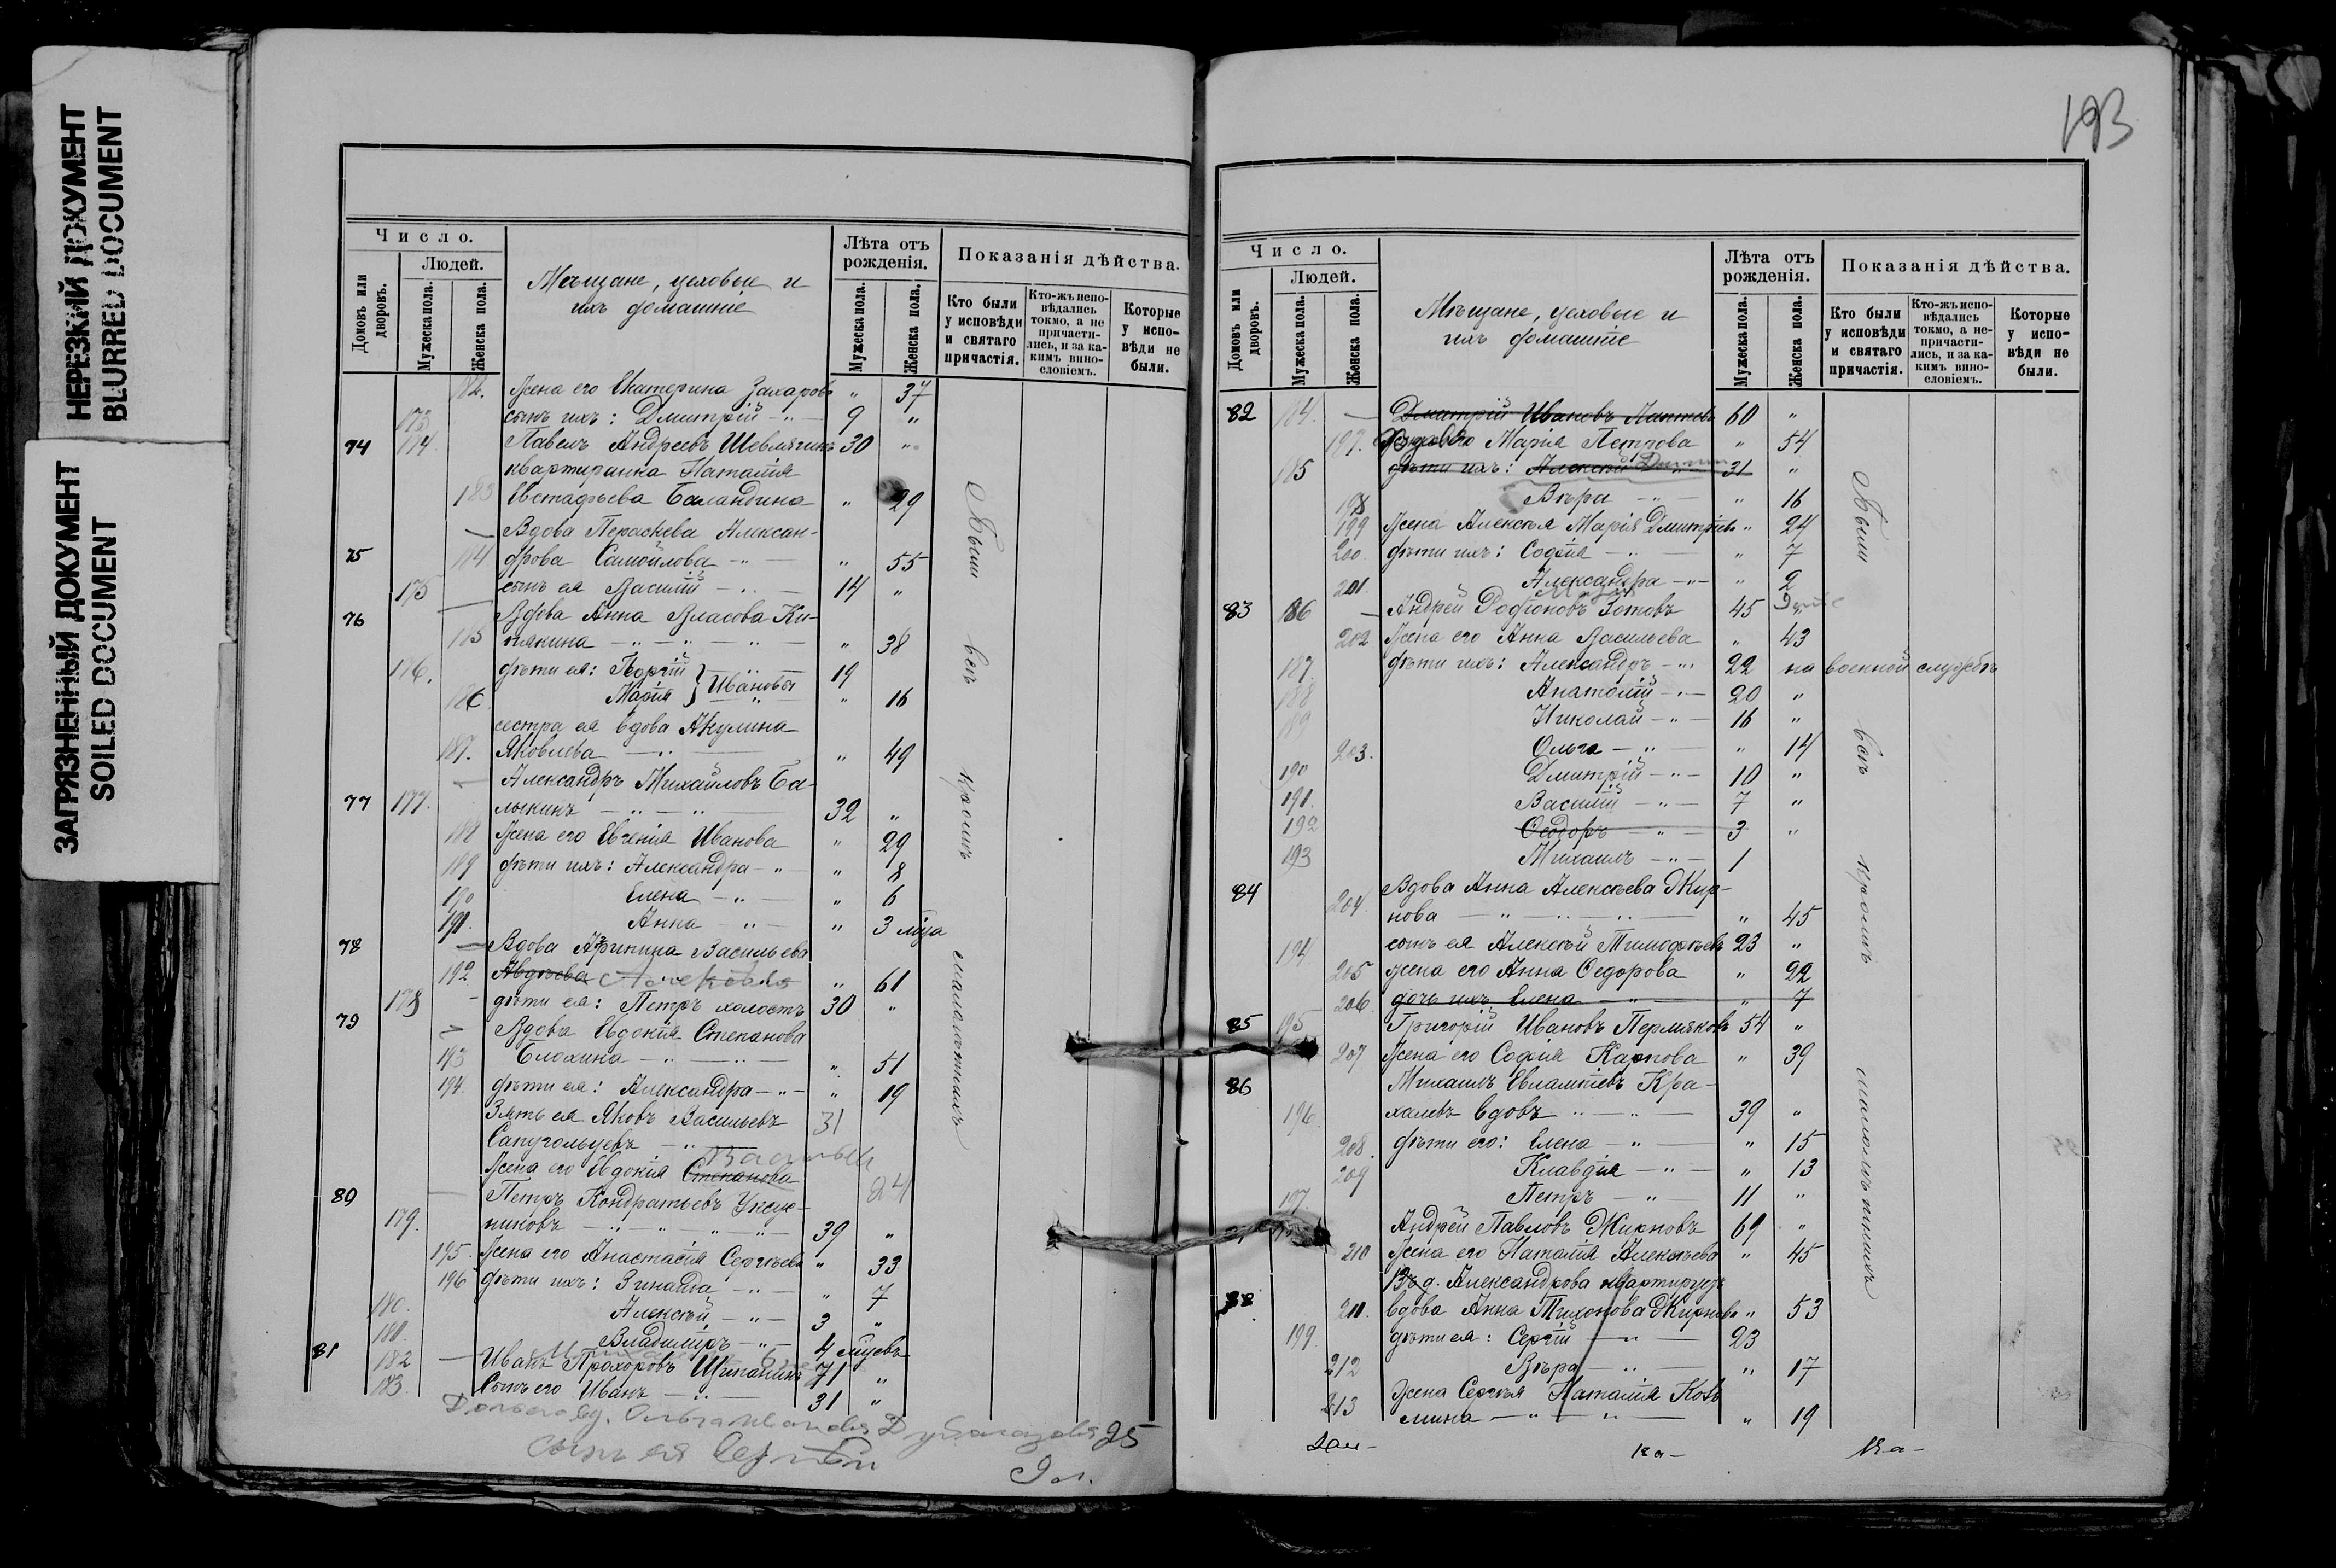 НЕРЕЗКИЙ ДОКУМЕНТ
BLURRED DOCUMENT
ЗАГРЯЗНЕННЫЙ ДОКУМЕНТ
SOILED DOCUMENT
Число.
Людей.
Домовъ или дворовъ.
Мужеска пола.
Женска пола.
Мѣщане, цеховые и
ихъ домашніе
Лѣта отъ рожденія.
Мужеска пола.
Женска пола.
Показанія дѣйства.
Кто были у исповѣди и святаго причастія.
Кто-жъ исповѣдались токмо, а не причастились, и за какимъ винословіемъ.
Которые у исповѣди не были.
182. Жена его Екатерина Захарова " 37
173 сынъ ихъ: Дмитрій 9 "
74 174. Павелъ Андреевъ Шевлягинъ 30 "
квартиранка Наталія
183 Евстафьева Баландина " 29
Вдова Параскева Алексан-
75 184 дрова Самойлова " 55
175 сынъ ея Василій 14 "
76 Вдова Анна Власова Ки-
185 пякина " 38
176. дѣти ея: Георгій } Ивановы 19
186 Марія " 16
сестра ея вдова Акулина
187. Яковлева " 49
Александръ Михайловъ Ба-
77 177. лыкинъ 32 "
188 Жена его Евгенія Иванова " 29
189 дѣти ихъ: Александра " 8
190 Елена " 6
191. Анна " 3 м́ца
78 Вдова Агрипина Васильева
192 Авдѣева " 61
178 дѣти ея: Петръ холостъ 30 "
79 Вдова Евдокія Степанова
193 Блохина " 51
194. дѣти ея: Александра " 19
Зять ея Яковъ Васильевъ 31
Сапугольцевъ
Жена его Евдокія Степанова 24
80 Петръ Кондратьевъ Уксус-
179. никовъ 39 "
195. Жена его Анастасія Сергѣева " 33
196 дѣти ихъ: Зинаида " 7
180. Алексѣй 3 "
181. Владиміръ 4 мѣсяцевъ
81 182 Иванъ Прохоровъ Щипанинъ 71 "
183. Сынъ его Иванъ 31 "
25
сынъ ея Сергѣй
9 л.
Были всѣ кромѣ малолѣтнихъ
193
Число.
Людей.
Домовъ или дворовъ.
Мужеска пола.
Женска пола.
Мѣщане, цеховые и
ихъ домашніе
Лѣта отъ рожденія.
Мужеска пола.
Женска пола.
Показанія дѣйства.
Кто были у исповѣди и святаго причастія.
Кто-жъ исповѣдались токмо, а не причастились, и за какимъ винословіемъ.
Которые у исповѣди не были.
82 184. Дмитрій Ивановъ Лаптевъ 60 "
197. Марія Петрова " 54
185 дѣти ихъ: Алексѣй 31 "
198 Вѣра " 16
199 Жена Алексѣя Марія Дмитріева " 24
200 дѣти ихъ: Софія " 7
201. Александра " 2
83 186 Андрей Родіоновъ Зотовъ 45 "
202 Жена его Анна Васильева " 43
187. дѣти ихъ: Александръ 22 на военной службѣ
188 Анатолій 20 "
189 Николай 16 "
203. Ольга " 14
190 Дмитрій 10 "
191. Василій 7 "
192 Ѳеодоръ 3 "
193 Михаилъ 1
84 Вдова Анна Алексѣева Жир-
204. нова " 45
194 сынъ ея Алексѣй Тимофѣевъ 23 "
205 жена его Анна Ѳедорова " 22
206 дочь ихъ Елена " 7
85 195 Григорій Ивановъ Пермяковъ 54 "
207 Жена его Софія Карпова " 39
86 Михаилъ Евлампіевъ Кра-
196 халевъ вдовъ 39 "
208. дѣти его: Елена " 15
209 Клавдія " 13
197. Петръ 11 "
Андрей Павловъ Жирновъ 69 "
210 Жена его Наталія Алексѣева " 45
Въ д. Александрова квартируетъ
88 211. вдова Анна Тихонова Жирнова " 53
199 дѣти ея: Сергій 23
212 Вѣра " 17
Жена Сергѣя Наталія Козь-
213 мина " 19
Были всѣ кромѣ малолѣтнихъ